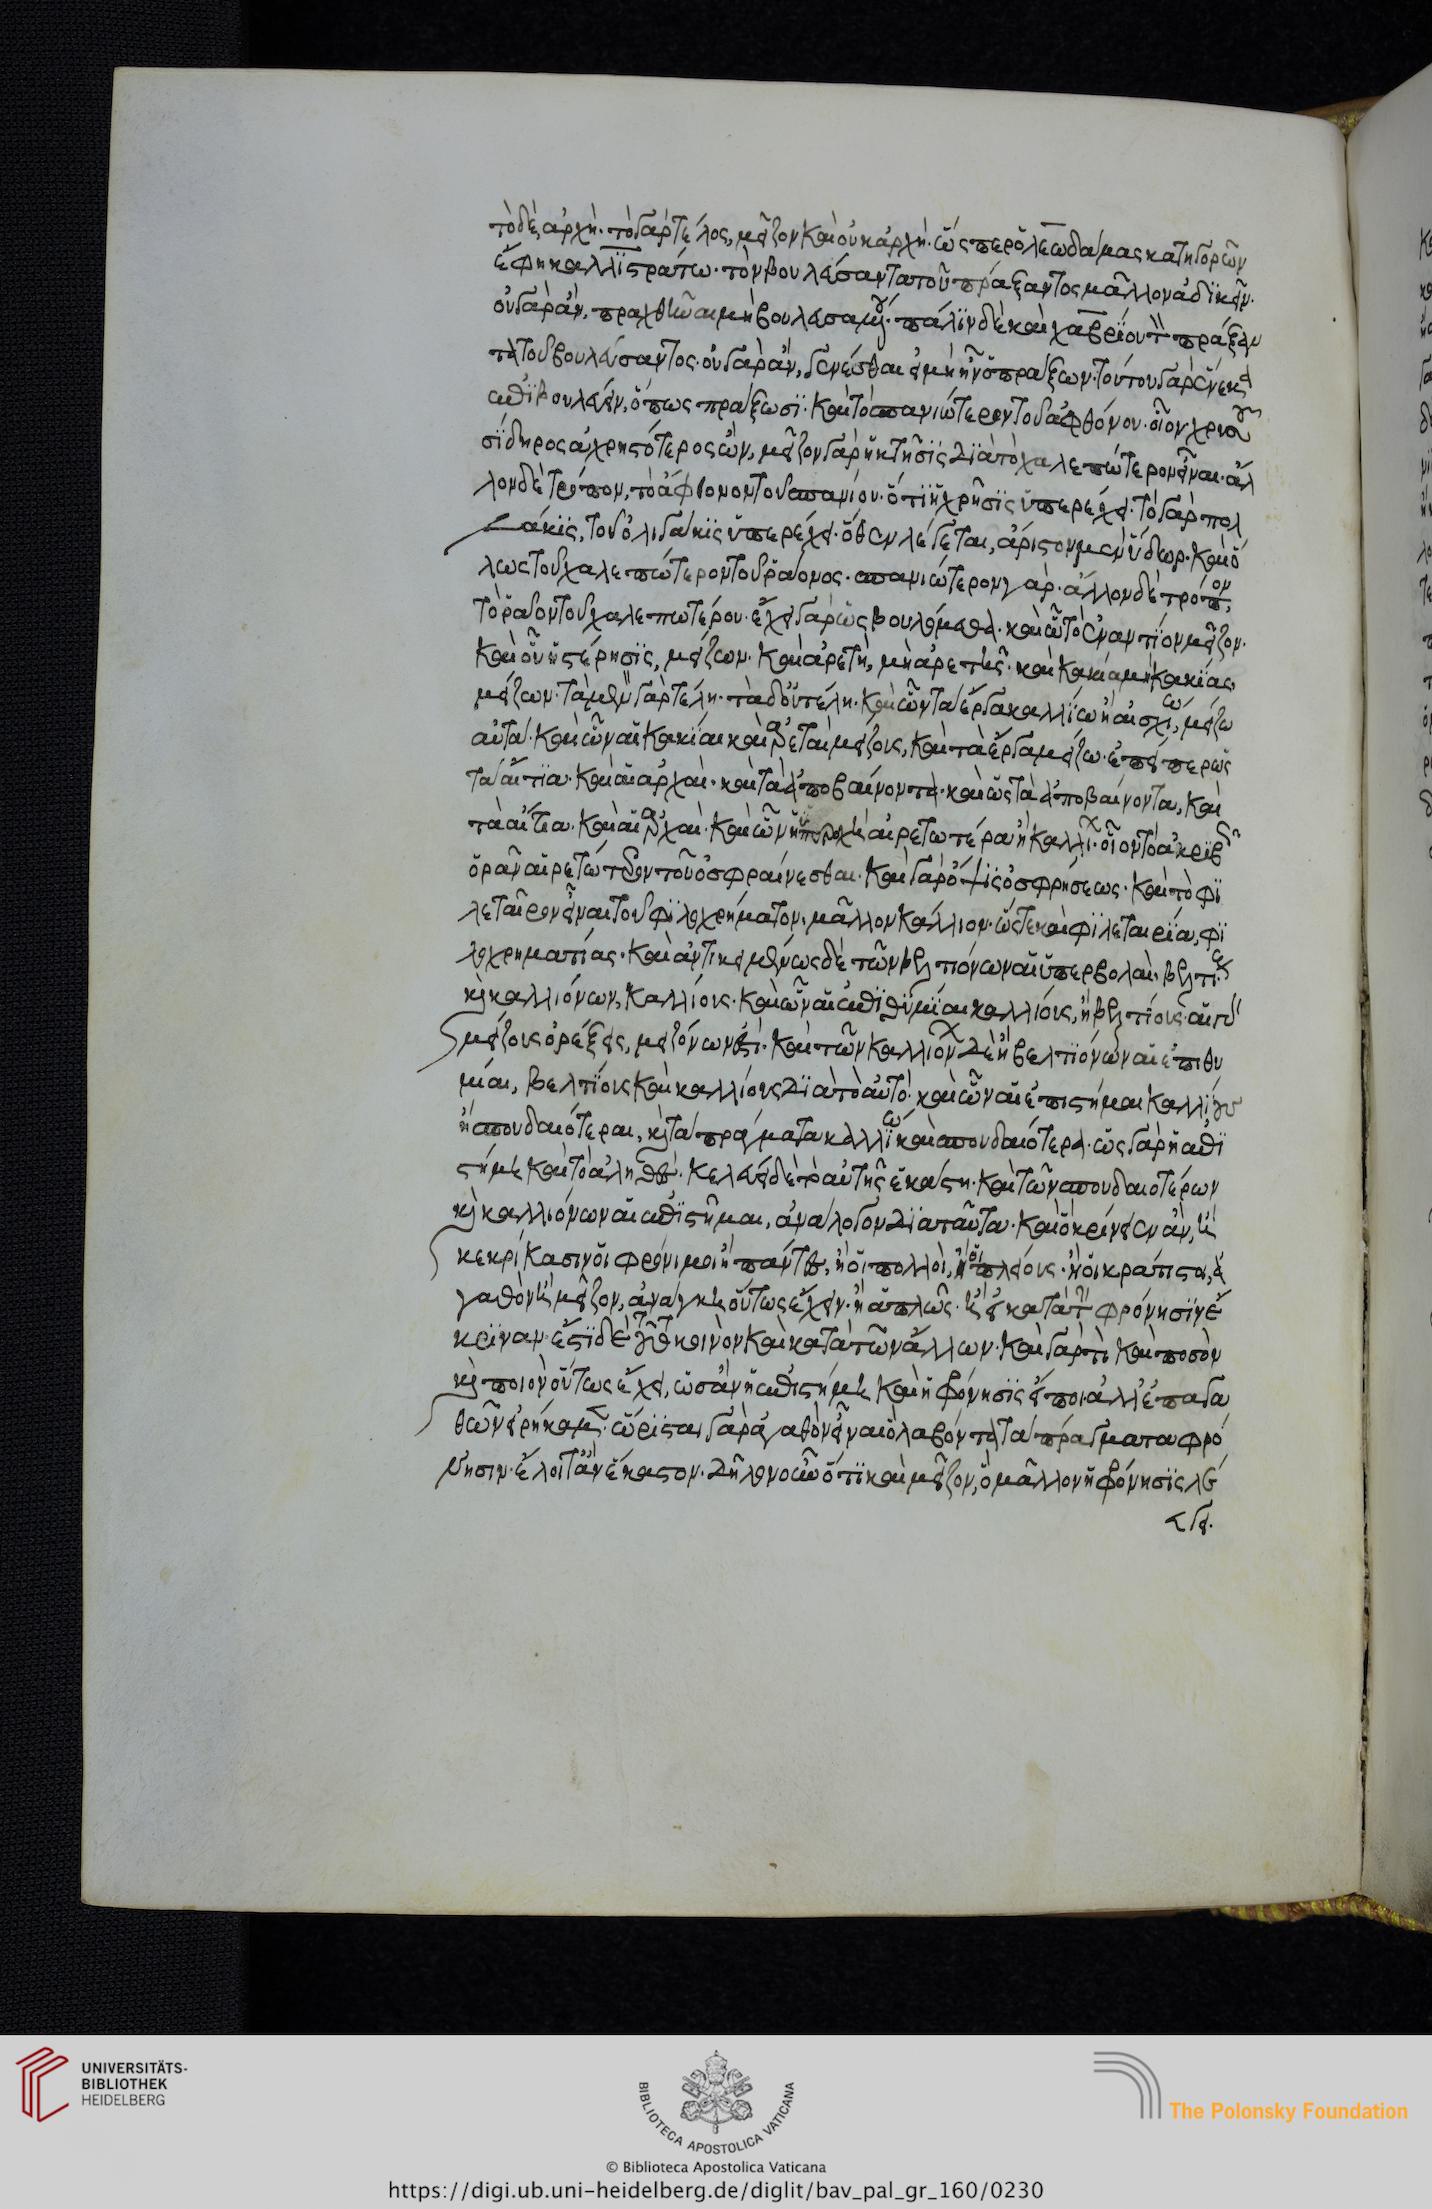 τὸ δὲ, ἀρχή· τὸ γὰρ τέλος, μεῖζον καὶ οὐκ ἀρχή· ὥσπερ ὁ λεωδάμας κατηγορῶν
ἔφη καλλιστράτω· τὸν βουλεύσαντα τοῦ πράξαντος μᾶλλον ἀδικεῖν·
οὐ γὰρ ἂν, πραχθῆναι μὴ βουλευσαμένου· πάλιν δὲ καὶ χαβρίου τὸν πράξαν
τα τοῦ βουλεύσαντος· οὐ γὰρ ἂν, γενέσθαι εἰ μὴ ἦν ὁ πράξων· τούτου γὰρ ἕνεκα
ἐπιβουλεύειν, ὅπως πράξωσι· καὶ τὸ σπανιώτερον τοῦ ἀφθόνου· οἷον χρυσοῦ
σίδηρος ἀχρηστότερος ὤν, μεῖζον γὰρ ἡ κτῆσις διὰ τὸ χαλεπώτερον εἶναι· ἄλ
λον δὲ τρόπον, τὸ ἄφθονον τοῦ σπανίου· ὅτι ἡ χρῆσις ὑπερέχει· τὸ γὰρ πολ
λάκις, τοῦ ὀλιγάκις ὑπερέχει· ὅθεν λέγεται, ἄριστον μὲν ὕδωρ· καὶ ὅ
λως τοῦ χαλεπώτερον τοῦ ῥάονος· σπανιώτερον γάρ· ἄλλον δὲ τρόπον,
τὸ ῥᾶον τοῦ χαλεπωτέρου· ἔχει γὰρ ὡς βουλόμεθα· καὶ ὧ τὸ ἐναντίον μεῖζον·
καὶ οὗ ἡ στέρησις, μείζων· καὶ ἀρετὴ, μὴ ἀρετῆς· καὶ κακία μὴ κακίας,
μείζων· τὰ μὲν γὰρ τέλη· τὰ δ' οὐ τέλη· καὶ ὧν τὰ ἔργα καλλίω ἢ αἰσχίω, μείζω
αὐτά· καὶ ὧν αἱ κακίαι καὶ ἀρεταὶ μείζους, καὶ τὰ ἔργα μείζω· ἐπείπερ ὡς
τὰ αἴτια· καὶ αἱ ἀρχαὶ· καὶ τὰ ἀποβαίνοντα· καὶ ὡς τὰ ἀποβαίνοντα, καὶ
τὰ αἴτια· καὶ αἱ ἀρχαὶ· καὶ ὧν ἡ ὑπεροχὴ αἱρετωτέρα ἢ καλλίων· οἷον τὸ ἀκριβῶς
ὁρᾶν αἱρετώτερον τοῦ ὀσφραίνεσθαι· καὶ γὰρ ὄψις ὀσφρήσεως· καὶ τὸ φι
λεταῖρον εἶναι τοῦ φιλοχρήματον, μᾶλλον κάλλιον· ὥστε καὶ φιλεταιρία, φι
λοχρηματίας· καὶ ἀντικειμένως δὲ τῶν βελτιόνων αἱ ὑπερβολαὶ· βελτίους
καὶ καλλιόνων, καλλίους· καὶ ὧν αἱ ἐπιθυμίαι καλλίους, ἢ βελτίους· αἱ γὰρ
μείζους ὀρέξεις, μειζόνων εἰσί· καὶ τῶν καλλιόνων δὲ ἢ βελτιόνων αἱ ἐπιθυ
μίαι, βελτίους καὶ καλλίους διὰ τὸ αὐτό· καὶ ὧν αἱ ἐπιστῆμαι καλλίους
ἢ σπουδαιότεραι, καὶ τὰ πράγματα καλλίω καὶ σπουδαιότερα· ὡς γὰρ ἡ ἐπι
στήμη καὶ τὸ ἀληθές· κελεύει δὲ τὸ αὑτῆς ἑκάστη· καὶ τῶν σπουδαιοτέρων
καὶ καλλιόνων αἱ ἐπιστῆμαι, ἀνάλογον διὰ ταῦτα· καὶ ὃ κρίνειεν ἂν, ἢ
κεκρίκασιν οἱ φρόνιμοι ἢ πάντες, ἢ οἱ πολλοὶ, ἢ οἱ πλείους· ἢ οἱ κράτιστοι, ἀ
γαθὸν ἢ μεῖζον, ἀνάγκη οὕτως ἔχειν· ἢ ἁπλῶς· ἢ εἰ κατὰ τὴν φρόνησιν ἔ
κριναν· ἔστι δὲ τοῦτο κοινὸν καὶ κατὰ τῶν ἄλλων· καὶ γὰρ τὶ καὶ ποσὸν
καὶ ποιὸν οὕτως ἔχει, ὡς ἂν ἡ ἐπιστήμη καὶ ἡ φρόνησις εἴποι ἀλλ' ἐπ' ἀγα
θῶν εἰρήκαμεν· ὥρισται γὰρ ἀγαθὸν εἶναι ὃ λαβόντα τὰ πράγματα φρό
νησιν· ἕλοιτ' ἂν ἕκαστον· δῆλον οὖν ὅτι καὶ μεῖζον, ὃ μᾶλλον ἡ φρόνησις λέ
γει.
UNIVERSITÄTS-
BIBLIOTHEK
HEIDELBERG
BIBLIOTECA APOSTOLICA VATICANA
The Polonsky Foundation
© Biblioteca Apostolica Vaticana
https://digi.ub.uni-heidelberg.de/diglit/bav_pal_gr_160/0230